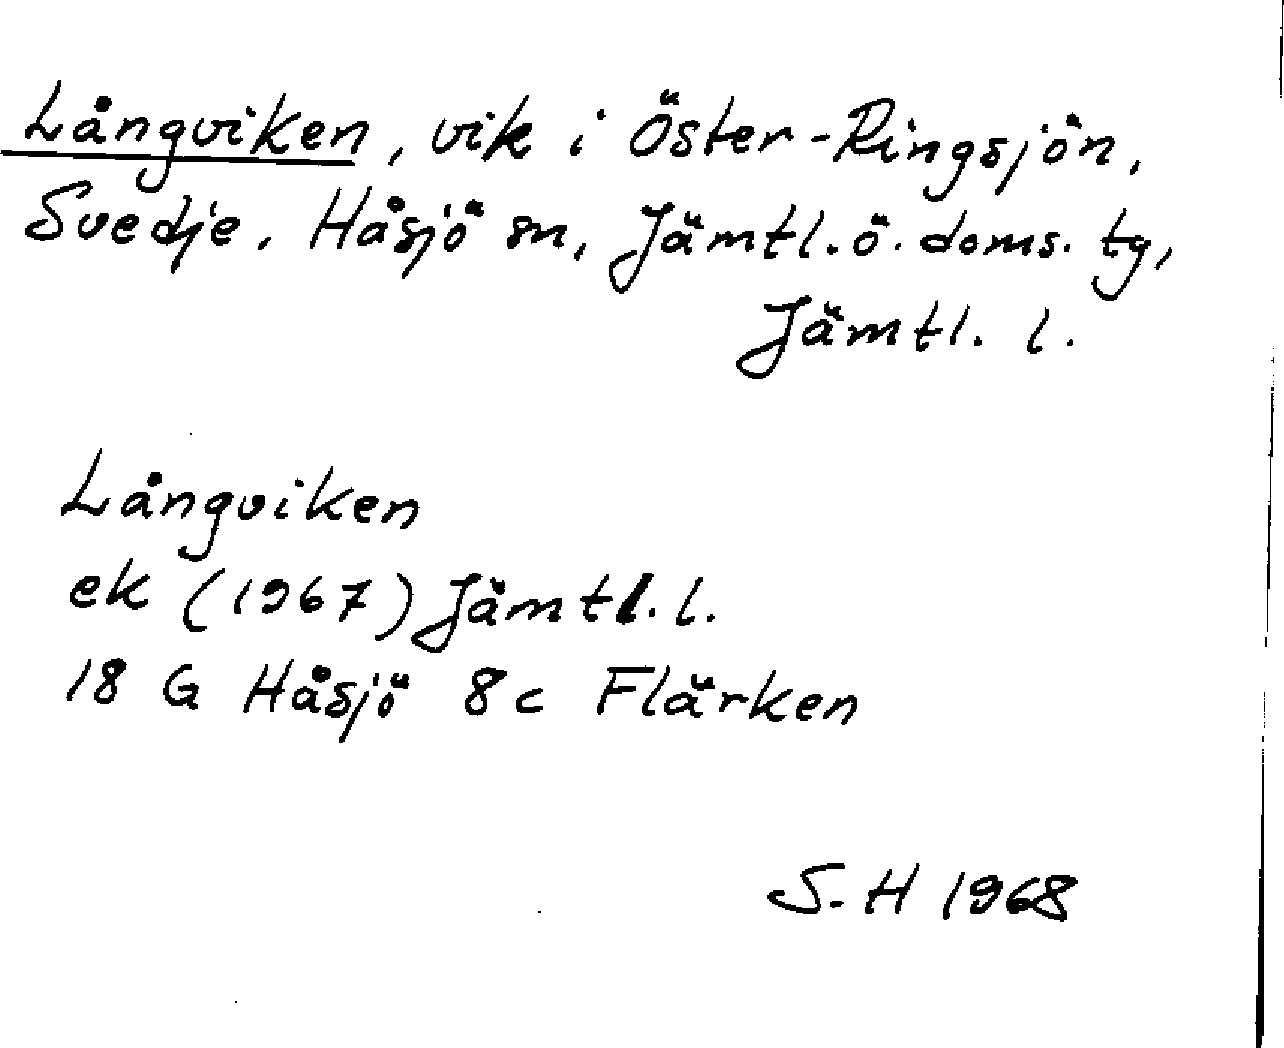 Långviken, vik i Öster-Ringsjön,
Svedje. Håsjö sn, Jämtl.ö. doms. tg,
Jämtl. l.
Långviken
ek (1967) Jämtl. l.
18 G Håsjö 8c Flärken
S-H 1968